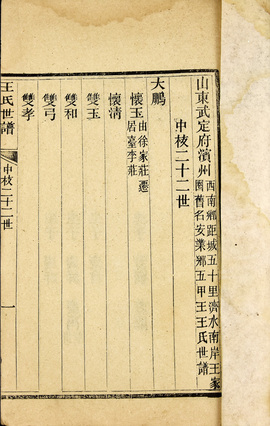 山東武定府濱州西南鄉距城五十里濟水南岸王家
圈舊名安業鄉五甲王王氏世譜
中枝二十二世
大鵬
懷玉由徐家莊遷
居臺李莊
懷清
雙玉
雙和
雙弓
雙孝
王氏世譜
中枝二十二世
一